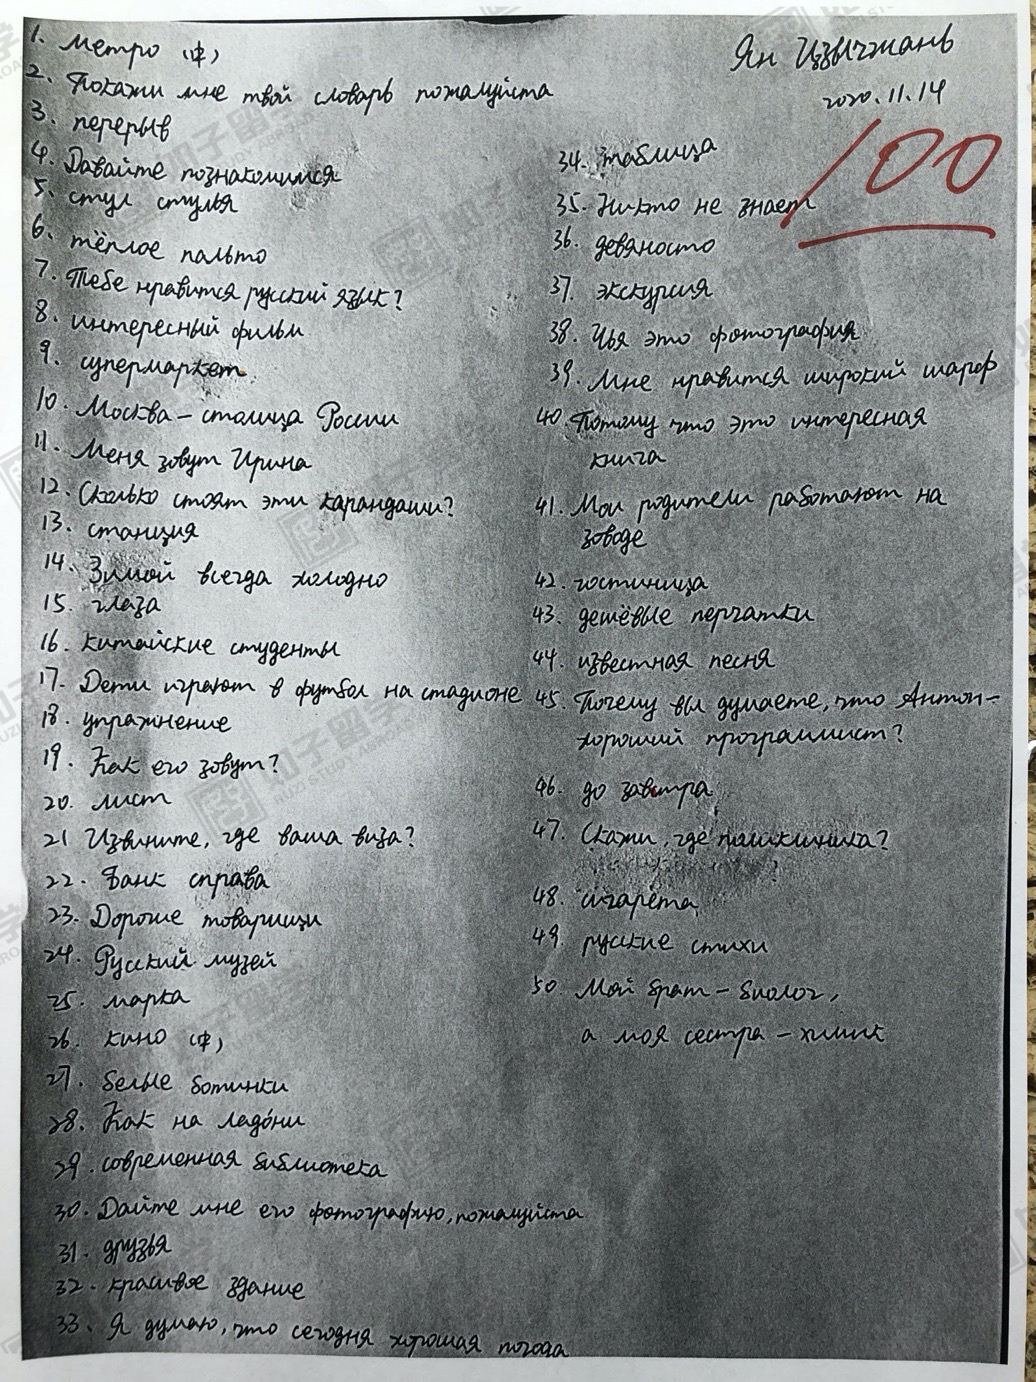 Ян Цзычжань
2020.11.14
100
1. метро (中)
2. Покажи мне твой словарь пожалуйста
3. перерыв
4. Давайте познакомимся
5. стул стулья
6. тёплое пальто
7. Тебе нравится русский язык?
8. интересный фильм
9. супермаркет
10. Москва – столица России
11. Меня зовут Ирина
12. Сколько стоят эти карандаши?
13. станция
14. Зимой всегда холодно
15. глаза
16. китайские студенты
17. Дети играют в футбол на стадионе
18. упражнение
19. Как его зовут?
20. лист
21 Извините, где ваша виза?
22. Банк справа
23. Дорогие товарищи
24. Русский музей
25. марка
26. кино (中)
27. белые ботинки
28. Как на ладони
29. современная библиотека
30. Дайте мне его фотографию, пожалуйста
31. друзья
32. красивое здание
33. Я думаю, что сегодня хорошая погода
34. таблица
35. Никто не знает
36. девяносто
37. экскурсия
38. Чья это фотография
39. Мне нравится широкий шарф
40. Потому что это интересная
книга
41. Мои родители работают на
зоводе
42. гостиница
43. дешёвые перчатки
44. известная песня
45. Почему вы думаете, что Антон –
хороший программист?
46. до завтра
47. Скажи, где поликлиника?
48. сигарета
49. русские стихи
50. Мой брат – биолог,
а моя сестра – химик